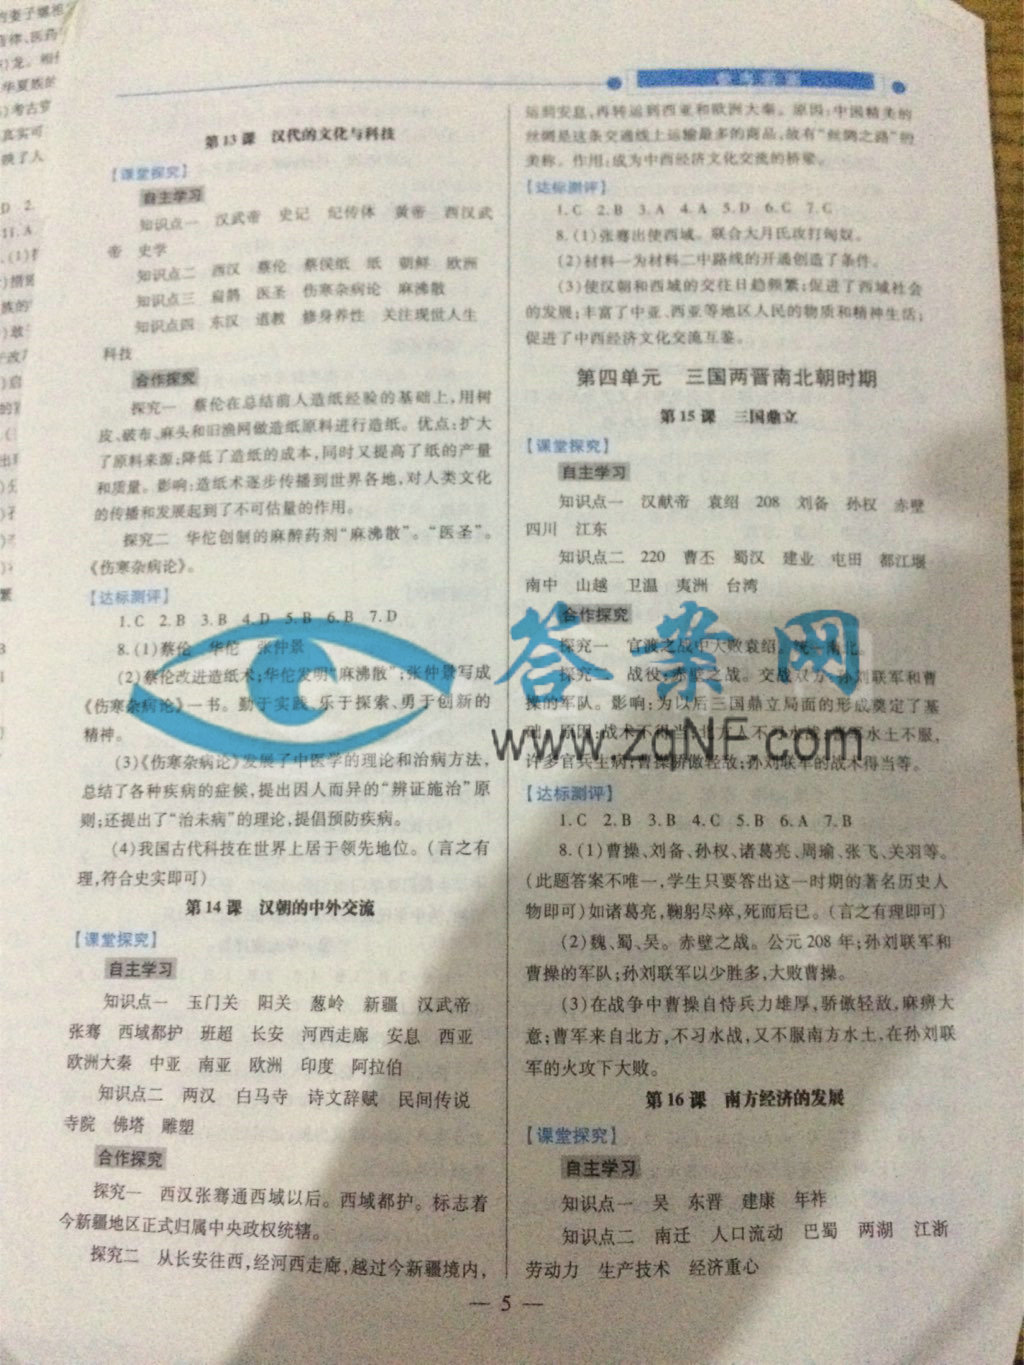 参考答案
第13课 汉代的文化与科技
【课堂探究】
自主学习
知识点一 汉武帝 史记 纪传体 黄帝 西汉武
帝 史学
知识点二 西汉 蔡伦 蔡侯纸 纸 朝鲜 欧洲
知识点三 扁鹊 医圣 伤寒杂病论 麻沸散
知识点四 东汉 道教 修身养性 关注现世人生
科技
合作探究
探究一 蔡伦在总结前人造纸经验的基础上,用树
皮、破布、麻头和旧渔网做造纸原料进行造纸。优点:扩大
了原料来源;降低了造纸的成本,同时又提高了纸的产量
和质量。影响:造纸术逐步传播到世界各地,对人类文化
的传播和发展起到了不可估量的作用。
探究二 华佗创制的麻醉药剂“麻沸散”。“医圣”。
《伤寒杂病论》。
【达标测评】
1.C 2.B 3.B 4.D 5.B 6.B 7.D
8.(1)蔡伦 华佗 张仲景
(2)蔡伦改进造纸术;华佗发明“麻沸散”;张仲景写成
《伤寒杂病论》一书。勤于实践、乐于探索、勇于创新的
精神。
(3)《伤寒杂病论》发展了中医学的理论和治病方法,
总结了各种疾病的症候,提出因人而异的“辨证施治”原
则;还提出了“治未病”的理论,提倡预防疾病。
(4)我国古代科技在世界上居于领先地位。(言之有
理,符合史实即可)
第14课 汉朝的中外交流
【课堂探究】
自主学习
知识点一 玉门关 阳关 葱岭 新疆 汉武帝
张骞 西域都护 班超 长安 河西走廊 安息 西亚
欧洲大秦 中亚 南亚 欧洲 印度 阿拉伯
知识点二 两汉 白马寺 诗文辞赋 民间传说
寺院 佛塔 雕塑
合作探究
探究一 西汉张骞通西域以后。西域都护。标志着
今新疆地区正式归属中央政权统辖。
探究二 从长安往西,经河西走廊,越过今新疆境内,
运到安息,再转运到西亚和欧洲大秦。原因:中国精美的
丝绸是这条交通线上运输最多的商品,故有“丝绸之路”的
美称。作用:成为中西经济文化交流的桥梁。
【达标测评】
1.C 2.B 3.A 4.A 5.D 6.C 7.C
8.(1)张骞出使西域。联合大月氏攻打匈奴。
(2)材料一为材料二中路线的开通创造了条件。
(3)使汉朝和西域的交往日趋频繁;促进了西域社会
的发展;丰富了中亚、西亚等地区人民的物质和精神生活;
促进了中西经济文化交流互鉴。
第四单元 三国两晋南北朝时期
第15课 三国鼎立
【课堂探究】
自主学习
知识点一 汉献帝 袁绍 208 刘备 孙权 赤壁
四川 江东
知识点二 220 曹丕 蜀汉 建业 屯田 都江堰
南中 山越 卫温 夷洲 台湾
合作探究
探究一 官渡之战中大败袁绍。统一北
探究二 战役:赤壁之战。交战双方:孙刘联军和曹
操的军队。影响:为以后三国鼎立局面的形成奠定了基
础。原因:战术不得当;北方人不习水战,曹军水土不服,
许多官兵生病;曹操骄傲轻敌;孙刘联军的战术得当等。
【达标测评】
1.C 2.B 3.B 4.C 5.B 6.A 7.B
8.(1)曹操、刘备、孙权、诸葛亮、周瑜、张飞、关羽等。
(此题答案不唯一,学生只要答出这一时期的著名历史人
物即可)如诸葛亮,鞠躬尽瘁,死而后已。(言之有理即可)
(2)魏、蜀、吴。赤壁之战。公元208年;孙刘联军和
曹操的军队;孙刘联军以少胜多,大败曹操。
(3)在战争中曹操自恃兵力雄厚,骄傲轻敌,麻痹大
意;曹军来自北方,不习水战,又不服南方水土,在孙刘联
军的火攻下大败。
第16课 南方经济的发展
【课堂探究】
自主学习
知识点一 吴 东晋 建康 年祚
知识点二 南迁 人口流动 巴蜀 两湖 江浙
劳动力 生产技术 经济重心
— 5 —
答案网
www.zqNF.com